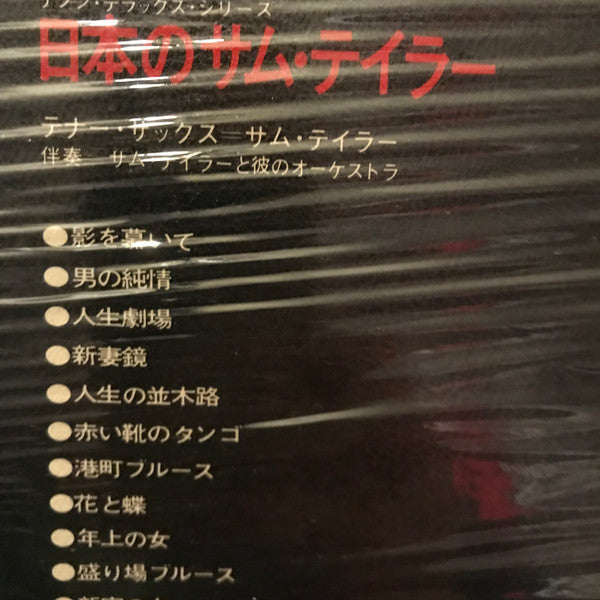 デラックス・シリーズ
日本のサム・テイラー
テナー・サックス=サム・テイラー
伴奏=サム・テイラーと彼のオーケストラ
●影を慕いて
●男の純情
●人生劇場
●新妻鏡
●人生の並木路
●赤い靴のタンゴ
●港町ブルース
●花と蝶
●年上の女
●盛り場ブルース